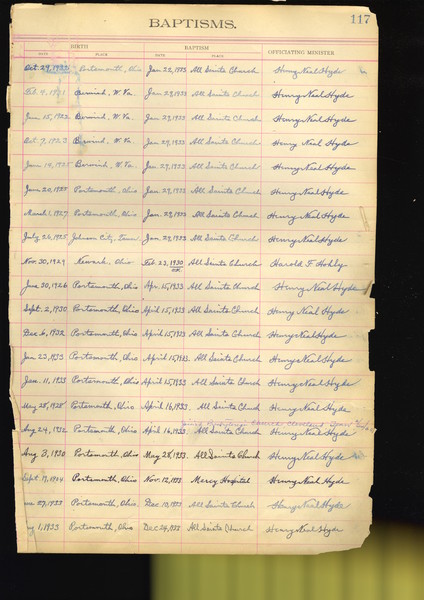 BAPTISMS. 117
BIRTH BAPTISM OFFICIATING MINISTER
DATE PLACE DATE PLACE
Oct 29, 1932 Portsmouth, Ohio Jan 22, 1933 All Saints Church Henry Neal Hyde
Feb 4, 1921 Berwind, W. Va. Jan 29, 1933 All Saints Church Henry Neal Hyde
Jan 15, 1922 Berwind, W. Va. Jan 29, 1933 All Saints Church Henry Neal Hyde
Oct 7, 1923 Berwind, W. Va. Jan 29, 1933 All Saints Church Henry Neal Hyde
Jan 14, 1925 Berwind, W. Va. Jan 29, 1933 All Saints Church Henry Neal Hyde
Jan 20, 1925 Portsmouth, Ohio Jan 29, 1933 All Saints Church Henry Neal Hyde
March 1, 1927 Portsmouth, Ohio Jan 29, 1933 All Saints Church Henry Neal Hyde
July 26, 1925 Johnson City, Tenn Jan 29, 1933 All Saints Church Henry Neal Hyde
Nov. 30, 1929 Newark, Ohio Feb 23, 1930 All Saints Church Harold F Hohly
OK
June 30, 1926 Portsmouth, Ohio Apr. 15, 1933 All Saints Church Henry Neal Hyde
Sept. 2, 1930 Portsmouth, Ohio April 15, 1933 All Saints Church Henry Neal Hyde
Dec 6, 1932 Portsmouth, Ohio April 15, 1933 All Saints Church Henry Neal Hyde
Jan 23, 1933 Portsmouth, Ohio April 15, 1933. All Saints Church Henry Neal Hyde
Jan. 11, 1933 Portsmouth, Ohio April 15, 1933 All Saints Church Henry Neal Hyde
May 25, 1925 Portsmouth, Ohio April 16, 1933. All Saints Church Henry Neal Hyde
Aug 24, 1932 Portsmouth, Ohio April 16, 1933 All Saints Church Henry Neal Hyde
Aug 3, 1930 Portsmouth, Ohio May 28, 1933. All Saints Church Henry Neal Hyde
Sept. 19, 1914 Portsmouth, Ohio Nov. 12, 1933 Mercy Hospital Henry Neal Hyde
29, 1933 Portsmouth, Ohio Dec 10, 1933 All Saints Church Henry Neal Hyde
1, 1933 Portsmouth, Ohio Dec 24, 1933 All Saints Church Henry Neal Hyde